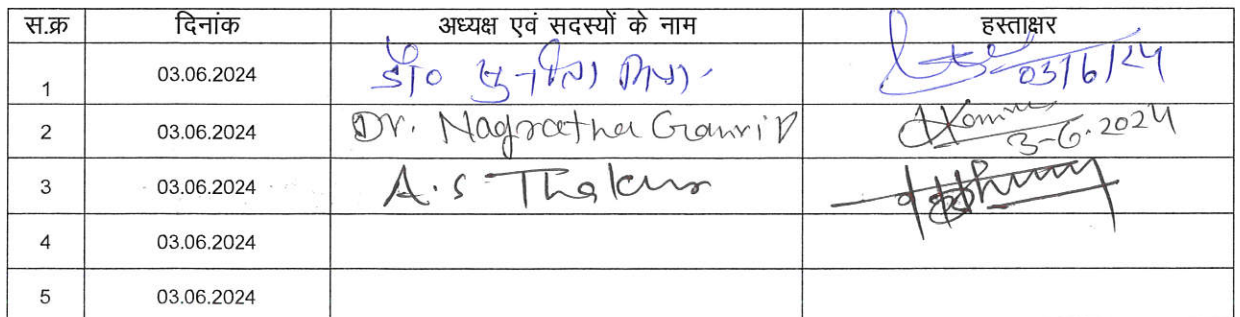 स.क्र दिनांक अध्यक्ष एवं सदस्यों के नाम हस्ताक्षर
1 03.06.2024 डॉ० 03/6/24
2 03.06.2024 Dr. Nagratna Ganvir 3-6.2024
3 03.06.2024 A.S Thakur
4 03.06.2024
5 03.06.2024